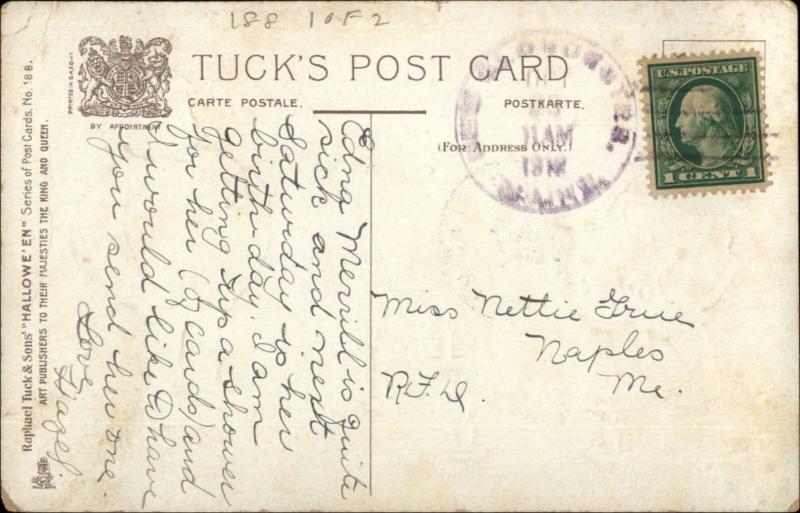 188 1 OF 2
TUCK'S POST CARD
CARTE POSTALE.
POSTKARTE.
(FOR ADDRESS ONLY.)
BY APPOINTMENT
PRINTED IN SAXONY
Raphael Tuck & Sons' "HALLOWE'EN" Series of Post Cards. No. 188.
ART PUBLISHERS TO THEIR MAJESTIES THE KING AND QUEEN.
11 AM
1912
MAINE.
U.S. POSTAGE
1 CENT 1
Edna Merrill is quite
sick and next
Saturday is her
birthday. I am
getting up a shower
for her (of cards) and
I would like to have
you send her one.
Love,
Hazel.
Miss Nettie True
Naples
R.F.D. Me.